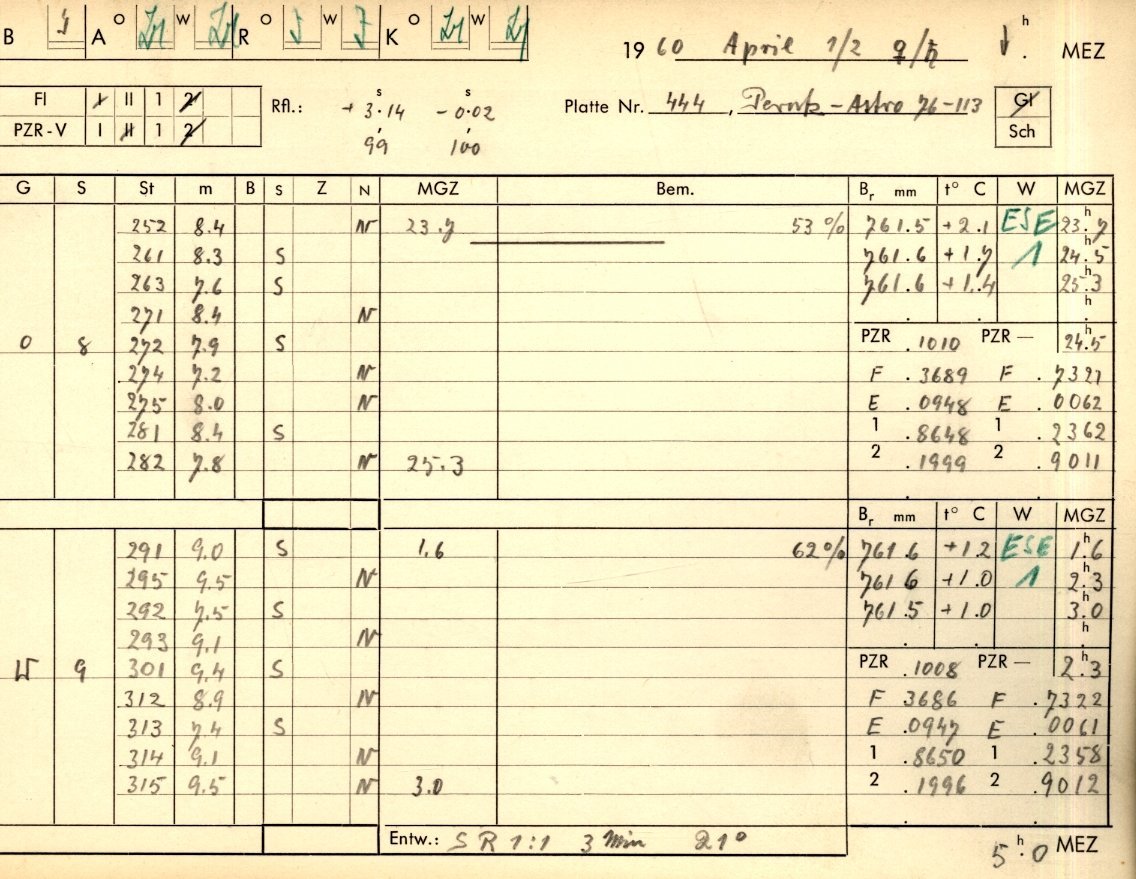 B A O W R O W K O W
19 60 April 1/2 ♀/♄ h . MEZ
Fl I II 1 2 Rfl.: + 3.14 s - 0.02 s Platte Nr. 444, Perutz-Astro 76-113 Gl
PZR-V I II 1 2 99 100 Sch
G S St m B S Z N MGZ Bem. Br mm t° C W MGZ
252 8.4 N 23.7 53 % 761.5 +2.1 ESE 23.7 h
261 8.3 S 761.6 +1.7 1 24.5 h
263 7.6 S 761.6 +1.4 25.3 h
271 8.4 N . . . h
O 8 272 7.9 S PZR .1010 PZR — 24.5
274 7.2 N F .3689 F .7321
275 8.0 N E .0948 E .0062
281 8.4 S 1 .8648 1 .2362
282 7.8 N 25.3 2 .1999 2 .9011
Br mm t° C W MGZ
291 9.0 S 1.6 62% 761.6 +1.2 ESE 1.6 h
295 9.5 N 761 6 +1.0 1 2.3 h
292 7.5 S 761.5 +1.0 3.0 h
293 9.1 N . . . h
W 9 301 9.4 S PZR .1008 PZR — 2.3
312 8.9 N F 3686 F .7322
313 7.4 S E .0947 E .0061
314 9.1 N 1 .8650 1 .2358
315 9.5 N 3.0 2 .1996 2 .9012
Entw.: S R 1:1 3 Min 21°
5.0 h MEZ